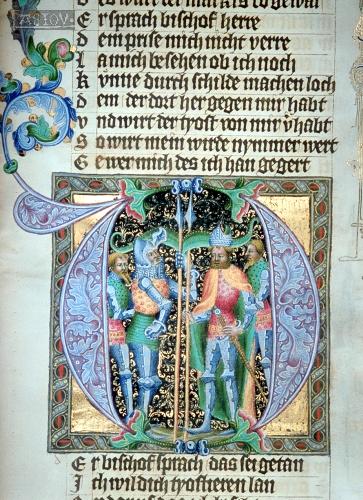 AKTOV
E rsprach bischof herre
D em prise mich nicht verre
L a mich besehen ob ich noch
K vnne durch schilde machen loch
D em der dort her gegen mir habt
V nd wirt der trost von mir v̓habt
S o wirt mein wirde nymmer wert
G ewer mich des ich han gegert
E r bischof sprach das sei getan
I ch wil dich tyostieren lan